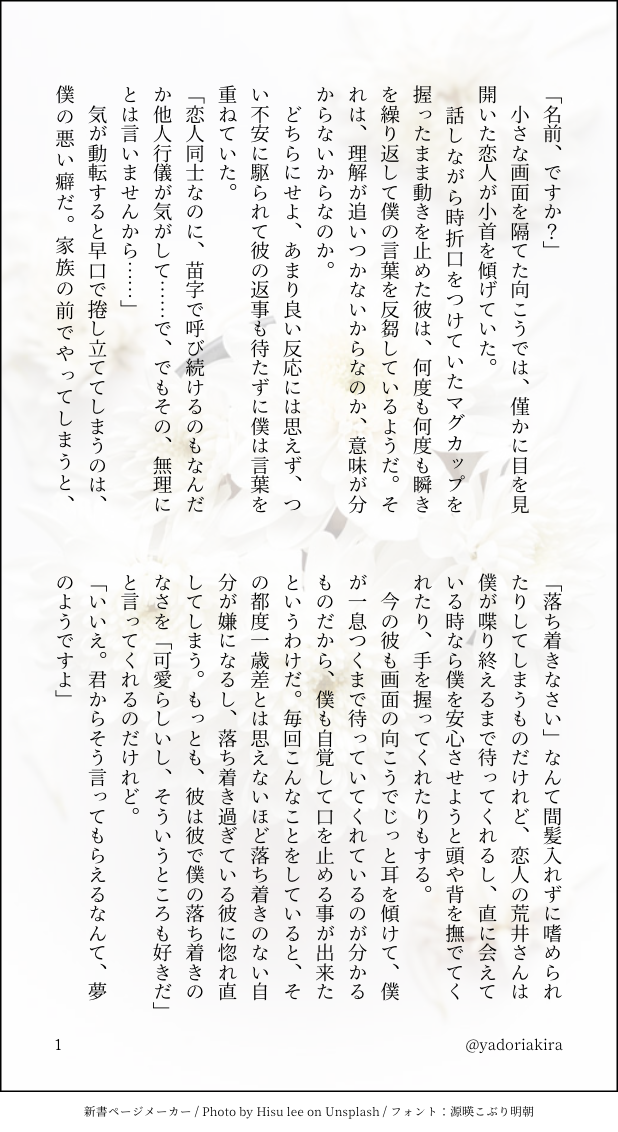 「名前、ですか？」
　小さな画面を隔てた向こうでは、僅かに目を見
開いた恋人が小首を傾げていた。
　話しながら時折口をつけていたマグカップを
握ったまま動きを止めた彼は、何度も何度も瞬き
を繰り返して僕の言葉を反芻しているようだ。そ
れは、理解が追いつかないからなのか、意味が分
からないからなのか。
　どちらにせよ、あまり良い反応には思えず、つ
い不安に駆られて彼の返事も待たずに僕は言葉を
重ねていた。
「恋人同士なのに、苗字で呼び続けるのもなんだ
か他人行儀が気がして……で、でもその、無理に
とは言いませんから……」
　気が動転すると早口で捲し立ててしまうのは、
僕の悪い癖だ。家族の前でやってしまうと、
「落ち着きなさい」なんて間髪入れずに嗜められ
たりしてしまうものだけれど、恋人の荒井さんは
僕が喋り終えるまで待ってくれるし、直に会えて
いる時なら僕を安心させようと頭や背を撫でてく
れたり、手を握ってくれたりもする。
　今の彼も画面の向こうでじっと耳を傾けて、僕
が一息つくまで待っていてくれているのが分かる
ものだから、僕も自覚して口を止める事が出来た
というわけだ。毎回こんなことをしていると、そ
の都度一歳差とは思えないほど落ち着きのない自
分が嫌になるし、落ち着き過ぎている彼に惚れ直
してしまう。もっとも、彼は彼で僕の落ち着きの
なさを「可愛らしいし、そういうところも好きだ」
と言ってくれるのだけれど。
「いいえ。君からそう言ってもらえるなんて、夢
のようですよ」
@yadoriakira
1
新書ページメーカー / Photo by Hisu lee on Unsplash / フォント：源暎こぶり明朝